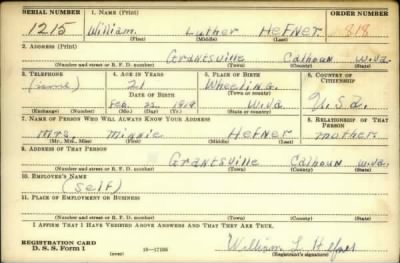 SERIAL NUMBER 1. NAME (Print) ORDER NUMBER
1215 William Luther Hefner 818
(First) (Middle) (Last)
2. ADDRESS (Print)
Grantsville Calhoun W.Va.
(Number and street or R. F. D. number) (Town) (County) (State)
3. TELEPHONE 4. AGE IN YEARS 5. PLACE OF BIRTH 6. COUNTRY OF CITIZENSHIP
21 Wheeling
DATE OF BIRTH (Town or county)
Feb 22 1919 W.Va U.S.A.
(Exchange) (Number) (Mo.) (Day) (Yr.) (State or country)
7. NAME OF PERSON WHO WILL ALWAYS KNOW YOUR ADDRESS 8. RELATIONSHIP OF THAT PERSON
Mrs. Minnie Hefner mother
(Mr., Mrs., Miss) (First) (Middle) (Last)
9. ADDRESS OF THAT PERSON
Grantsville Calhoun W.Va.
(Number and street or R. F. D. number) (Town) (County) (State)
10. EMPLOYER'S NAME
(self)
11. PLACE OF EMPLOYMENT OR BUSINESS
(Number and street or R. F. D. number) (Town) (County) (State)
I AFFIRM THAT I HAVE VERIFIED ABOVE ANSWERS AND THAT THEY ARE TRUE.
REGISTRATION CARD
D. S. S. Form 1 (over) 16—17105 William L Hefner
(Registrant's signature)